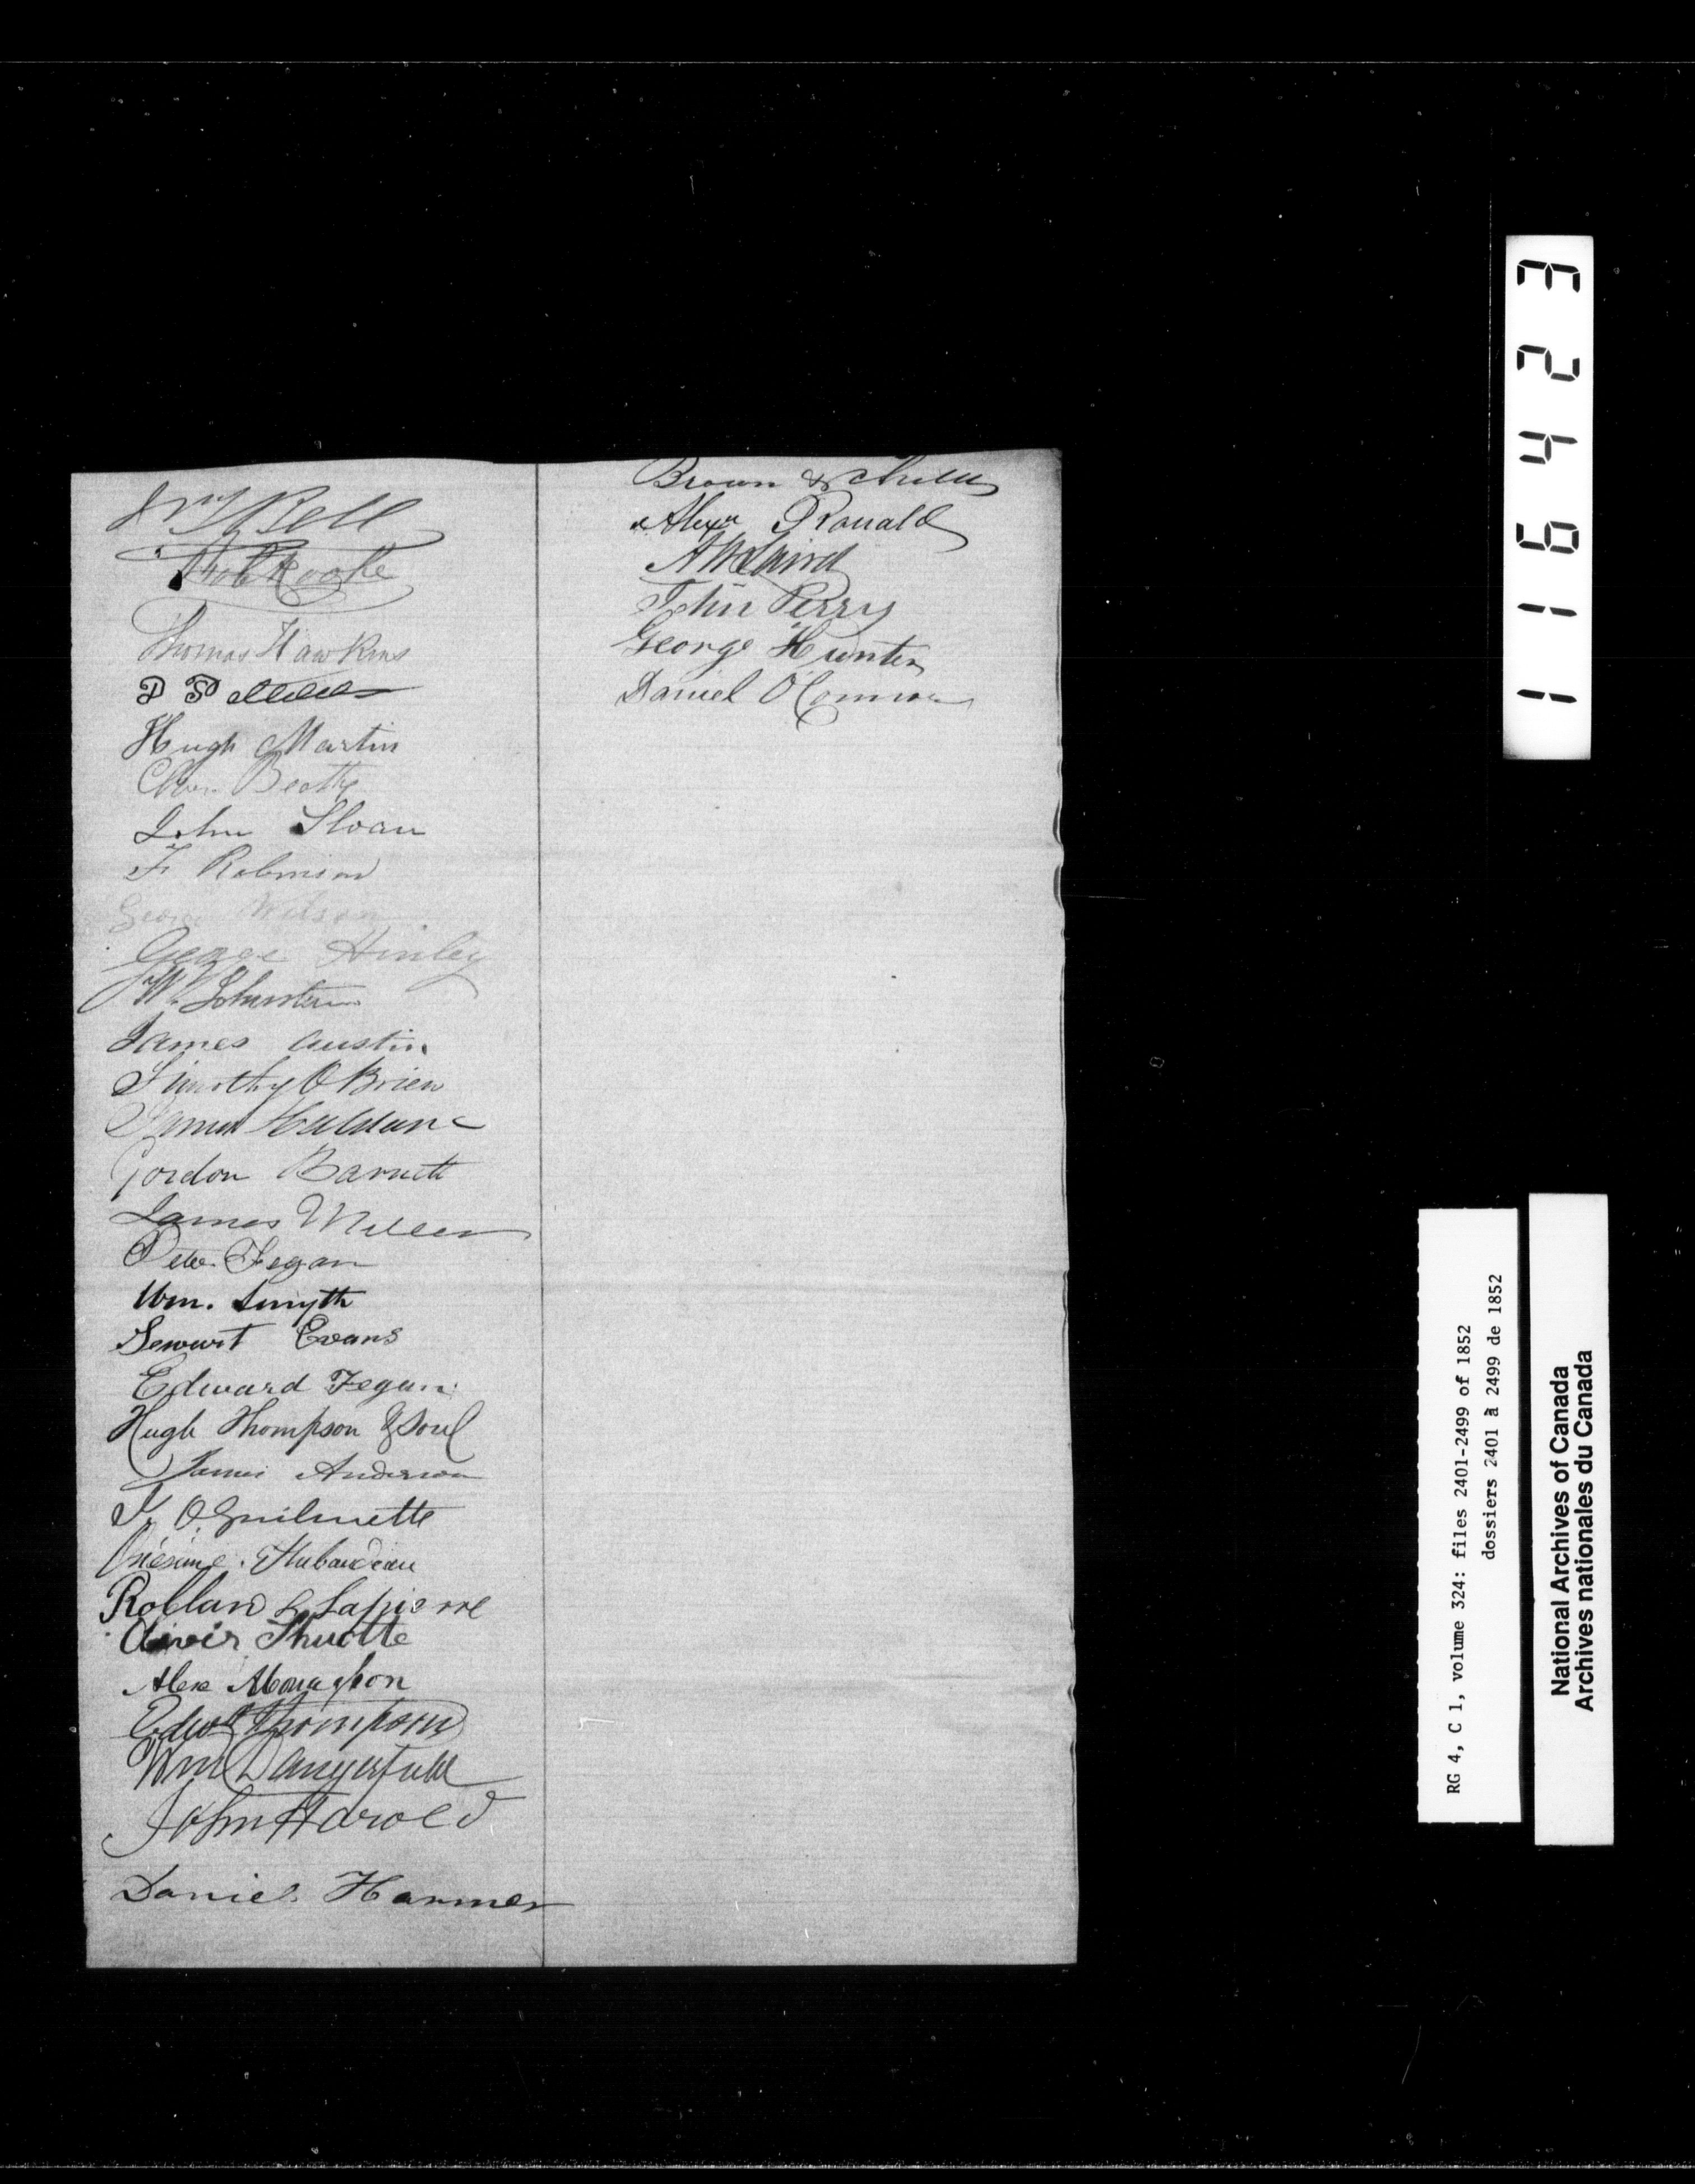 Bell
Thomas Hawkins
D S
Hugh Martin
Beatty
John Sloan
F Robinson
George Wilson
George Hinley
W. Johnston
James Austin
Timothy O Brien
James Haldane
Gordon Barnett
James Miller
Peter Fegan
Wm. Smyth
Stewart Evans
Edward Fegan
Hugh Thompson
James Anderson
O. Guilmette
Onésime
Rollan & Lapierre
Alex Monaghon
Edwd Thompson
Wm Dangerfield
John Harold
Daniel Harmer
Brown &
Alexr Ronald
John Perry
George Hunter
Daniel O'Connor
116423
RG 4, C 1, volume 324: files 2401-2499 of 1852
dossiers 2401 à 2499 de 1852
National Archives of Canada
Archives nationales du Canada